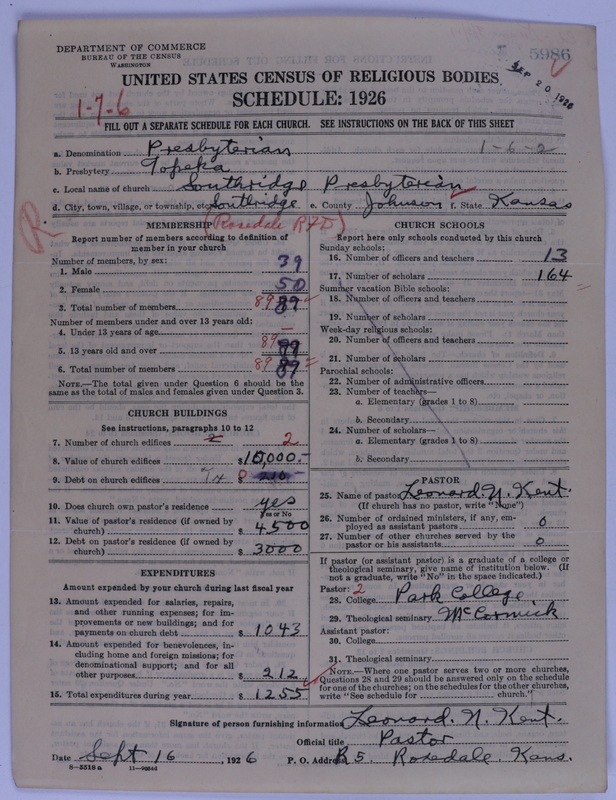 DEPARTMENT OF COMMERCE
BUREAU OF THE CENSUS
WASHINGTON
5986
SEP 20 1926
UNITED STATES CENSUS OF RELIGIOUS BODIES
SCHEDULE: 1926
1-7-6
FILL OUT A SEPARATE SCHEDULE FOR EACH CHURCH. SEE INSTRUCTIONS ON THE BACK OF THIS SHEET
a. Denomination Presbyterian 1-6-2
b. Presbytery Topeka
c. Local name of church Southridge Presbyterian
d. City, town, village, or township, etc. Southridge e. County Johnson f. State Kansas
(Rosedale RFD)
R
MEMBERSHIP
Report number of members according to definition of
member in your church
Number of members, by sex:
1. Male 39
2. Female 50
3. Total number of members 89 89
Number of members under and over 13 years old:
4. Under 13 years of age —
5. 13 years old and over 89 89
6. Total number of members 89 89
NOTE.—The total given under Question 6 should be the
same as the total of males and females given under Question 3.
CHURCH BUILDINGS
See instructions, paragraphs 10 to 12
7. Number of church edifices 2 2
8. Value of church edifices $10,000.-
9. Debt on church edifices 0 $ 210-
10. Does church own pastor's residence yes
Yes or No
11. Value of pastor's residence (if owned by
church) $ 4500
12. Debt on pastor's residence (if owned by
church) $ 3000
EXPENDITURES
Amount expended by your church during last fiscal year
13. Amount expended for salaries, repairs,
and other running expenses; for im-
provements or new buildings; and for
payments on church debt $ 1043
14. Amount expended for benevolences, in-
cluding home and foreign missions; for
denominational support; and for all
other purposes $ 212
15. Total expenditures during year $ 1255
CHURCH SCHOOLS
Report here only schools conducted by this church
Sunday schools:
16. Number of officers and teachers 13
17. Number of scholars 164
Summer vacation Bible schools:
18. Number of officers and teachers
19. Number of scholars
Week-day religious schools:
20. Number of officers and teachers
21. Number of scholars
Parochial schools:
22. Number of administrative officers
23. Number of teachers—
a. Elementary (grades 1 to 8)
b. Secondary
24. Number of scholars—
a. Elementary (grades 1 to 8)
b. Secondary
PASTOR
25. Name of pastor Leonard. N. Kent.
(If church has no pastor, write "None")
26. Number of ordained ministers, if any, em-
ployed as assistant pastors 0
27. Number of other churches served by the
pastor or his assistants 0
If pastor (or assistant pastor) is a graduate of a college or
theological seminary, give name of institution below. (If
not a graduate, write "No" in the space indicated.)
Pastor: 2
28. College Park College
29. Theological seminary McCormick
Assistant pastor:
30. College
31. Theological seminary
NOTE.—Where one pastor serves two or more churches,
Questions 28 and 29 should be answered only on the schedule
for one of the churches; on the schedules for the other churches,
write "See schedule for church."
Signature of person furnishing information Leonard. N. Kent.
Official title Pastor
Date Sept 16, 1926 P. O. Address R 5. Rosedale, Kans.
8—5518 a